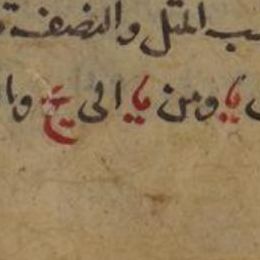 ـب المثل والنصف
يا ومن يا الى يح وا